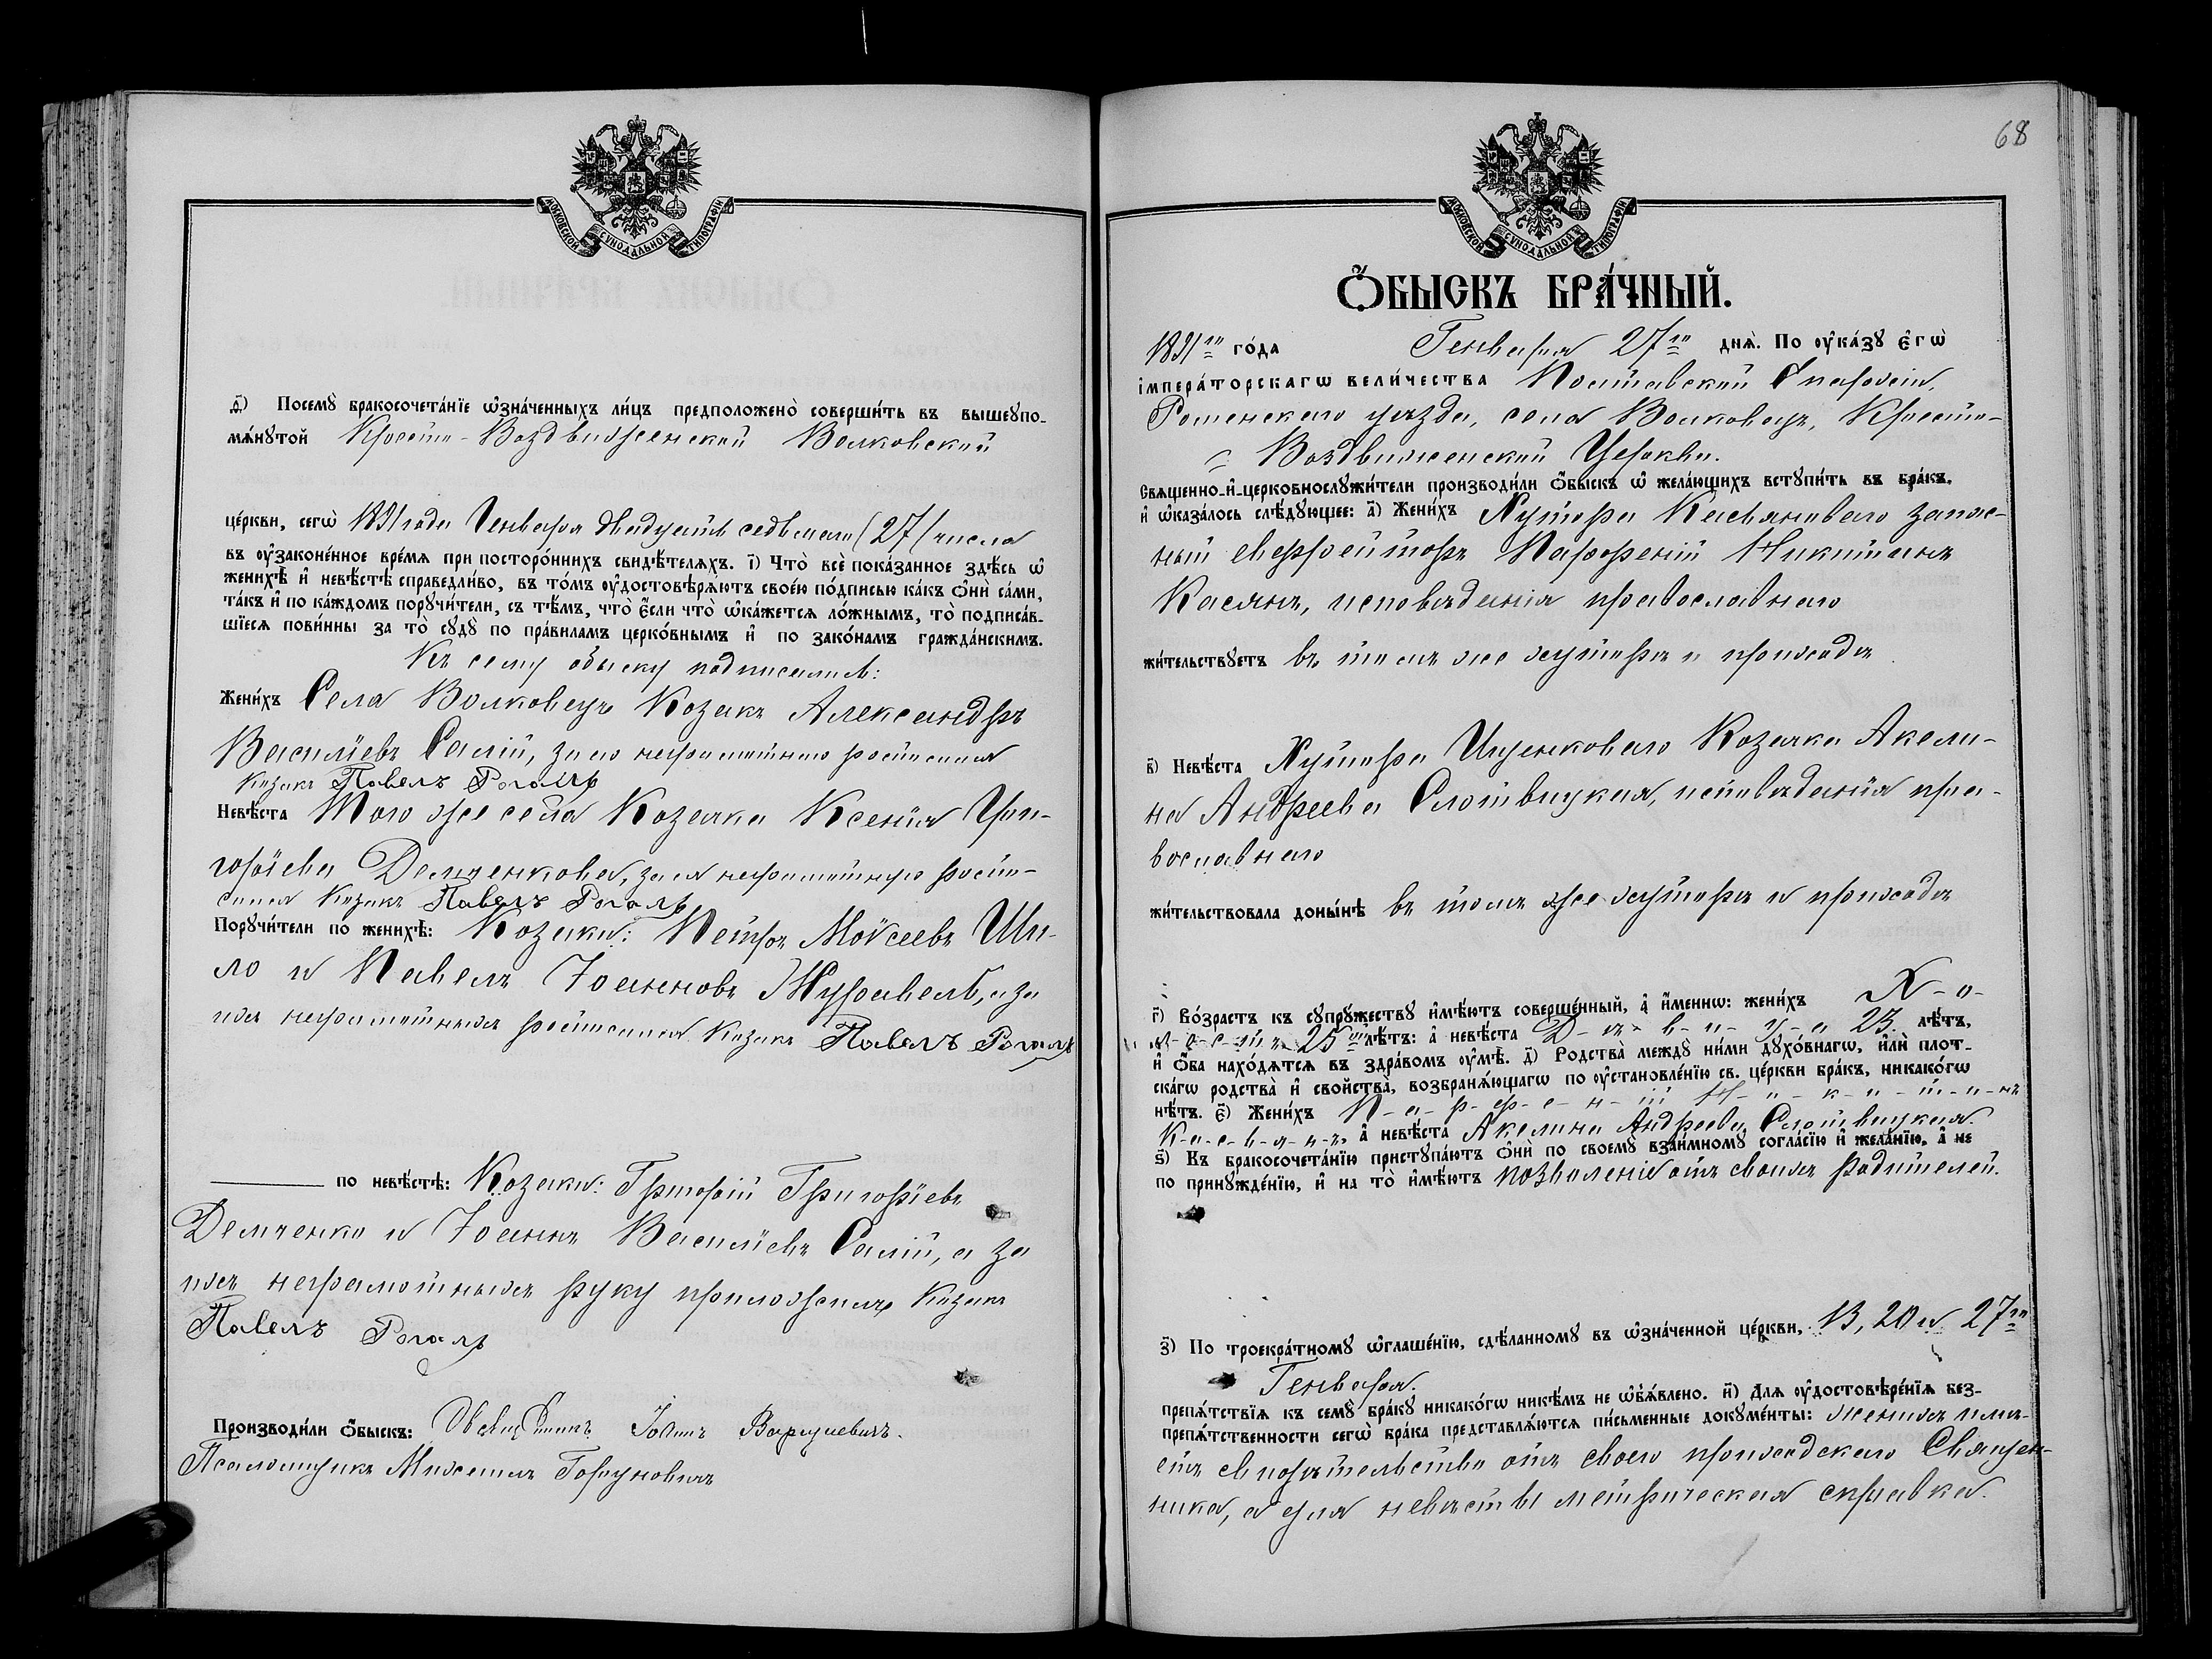 МОСКОВСКОЙ СѴНОДАЛЬНОЙ ТИПОГРАФІИ
д҃) Посемꙋ бракосочета́нїе ѡ҆зна́ченныхъ ли́цъ предположено̀ соверши́ть въ вышеꙋпо-
мѧ́нꙋтой Кресто-Воздвиженской Волковской
це́ркви, сегѡ̀ 1891 года Генваря двадцать седьмаго (27) числа
въ ᲂу҆законе́нное вре́мѧ при посторо́ннихъ свидѣ́телѧхъ. і҃) Что̀ всѐ пока́занное здѣ́сь ѡ҆
женихѣ̀ и҆ невѣ́стѣ справедли́во, въ то́мъ ᲂу҆достовѣрѧ́ютъ свое́ю по́дписью ка́къ ѻ҆нѝ са́ми,
та́къ и҆ по ка́ждомъ порꙋчи́тели, съ тѣ́мъ, что̀ є҆́сли что̀ ѡ҆ка́жетсѧ ло́жнымъ, то̀ подписа́в-
шїесѧ пови́нны за то̀ сꙋдꙋ̀ по пра́виламъ церко́внымъ и҆ по зако́намъ гражда́нскимъ.
Къ сему обыску подписались:
Жени́хъ Села Волковецъ Козакъ Александръ
Василіевъ Салій, за его неграмотнаго росписался
Козакъ Павелъ Рогаль
Невѣ́ста Того же села Козачка Ксенія Гри-
горіева Демченкова, за ея неграмотную роспи-
сался Козакъ Павелъ Рогаль
Порꙋчи́тели по женихѣ̀: Козаки: Петръ Моѵсеевъ Ши-
ло и Павелъ Іоанновъ Журавель, а за
ихъ неграмотныхъ росписался Козакъ Павелъ Рогаль
по невѣ́стѣ: Козаки: Григорій Григоріевъ
Демченко и Іоаннъ Василіевъ Салій, а за
ихъ неграмотныхъ руку приложилъ Козакъ
Павелъ Рогаль
Производи́ли ѻ҆́быскъ: Священникъ Іоаннъ
Псаломщикъ Михаилъ
68
МОСКОВСКОЙ СѴНОДАЛЬНОЙ ТИПОГРАФІИ
Ѻ҆́БЫСКЪ БРА́ЧНЫЙ.
1891го го́да Генваря 27го днѧ̀. По ᲂу҆ка́зꙋ є҆гѡ̀
і҆мпера́торскагѡ вели́чества Полтавской Епархіи,
Роменскаго уѣзда, села Волковецъ, Кресто-
Воздвиженской Церкви.
Свѧщенно-и҆-церковнослꙋжи́тели производи́ли ѻ҆́быскъ ѡ҆ жела́ющихъ встꙋпи́ть въ бра́къ.
и҆ ѡ҆каза́лось слѣ́дꙋющее: а҃) Жени́хъ Хутора Касьяноваго запас-
ный ефрейторъ Парфеній Никитинъ
Касянъ, исповѣданія православнаго
жи́тельствꙋетъ въ томъ же хуторѣ и приходѣ
в҃) Невѣ́ста Хутора Ищенковаго Козачка Акели-
на Андреева Слотвицкая, исповѣданія пра-
вославнаго
жи́тельствовала доны́нѣ въ томъ же хуторѣ и приходѣ
г҃) Во́зрастъ къ сꙋпрꙋ́жествꙋ и҆мѣ́ютъ соверше́нный, а҆̀ и҆́меннѡ: жени́хъ Х-о-
л-о-с-т-ъ 25ти лѣ́тъ: а҆̀ невѣ́ста Д-ѣ-в-и-ц-а 23. лѣ́тъ,
и҆ ѻ҆́ба нахо́дѧтсѧ въ здра́вомъ ᲂу҆мѣ̀. д҃) Родства̀ междꙋ̀ ни́ми дꙋхо́внагѡ, и҆лѝ плот-
ска́гѡ родства̀ и҆ сво́йства, возбранѧ́ющагѡ по ᲂу҆становле́нїю св. це́ркви бра́къ, никако́гѡ
нѣ́тъ. є҃) Жени́хъ П-а-р-ф-е-н-ій Н-и-к-и-т-и-нъ
К-а-с-ь-я-н-ъ, а҆̀ невѣ́ста Акелина Андреева Слотвицкая.
ѕ҃) Къ бракосочета́нїю пристꙋпа́ютъ ѻ҆нѝ по своемꙋ̀ взаи́мномꙋ согла́сїю и҆ жела́нїю, а҆̀ не
по принꙋжде́нїю, и҆ на то̀ и҆мѣ́ютъ позволеніе отъ своихъ родителей.
з҃) По троекра́тномꙋ ѡ҆глаше́нїю, сдѣ́ланномꙋ въ ѡ҆зна́ченной це́ркви, 13, 20 и 27го
Генваря.
препѧ́тствїѧ къ семꙋ̀ бра́кꙋ никако́гѡ никѣ́мъ не ѡ҆б̾ѧ́влено. и҃) Длѧ ᲂу҆достовѣре́нїѧ без-
препѧ́тственности сегѡ̀ бра́ка представлѧ́ютсѧ пи́сьменные докꙋме́нты: женихъ имѣ-
етъ отъ своего приходскаго Священ-
ника, а для невѣсты метрическая справка.